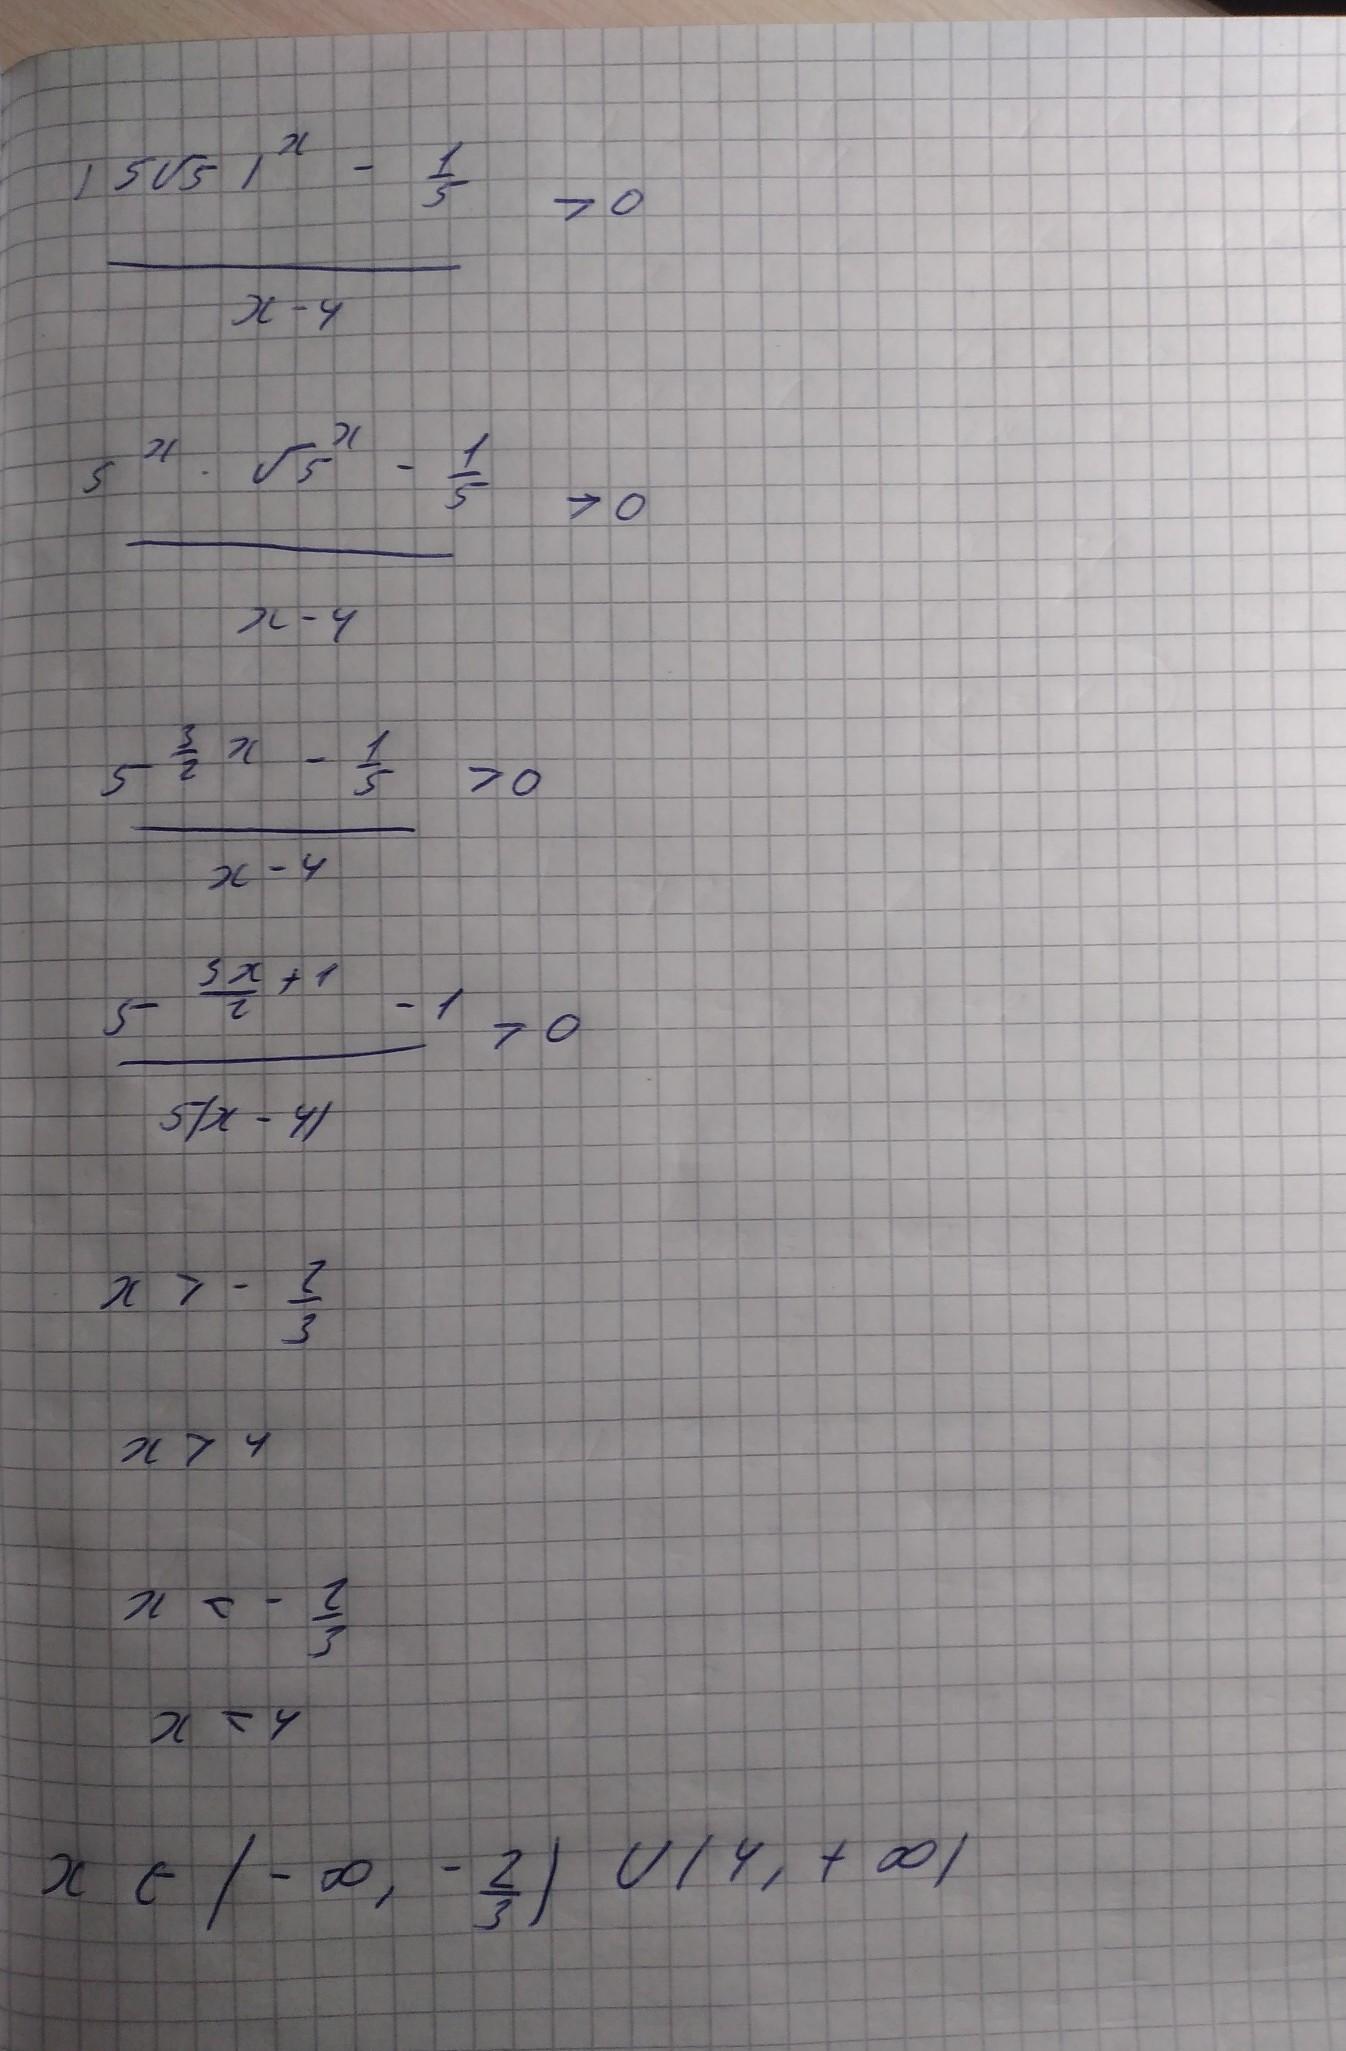 (5√5)^x - 1/5
> 0
x - 4
5^x · √5^x - 1/5
> 0
x - 4
5^(3/2 x) - 1/5 > 0
x - 4
5^(3x/2 + 1) - 1 > 0
5(x - 4)
x > - 2/3
x > 4
x < - 2/3
x < 4
x ∈ (-∞, -2/3) ∪ (4, +∞)